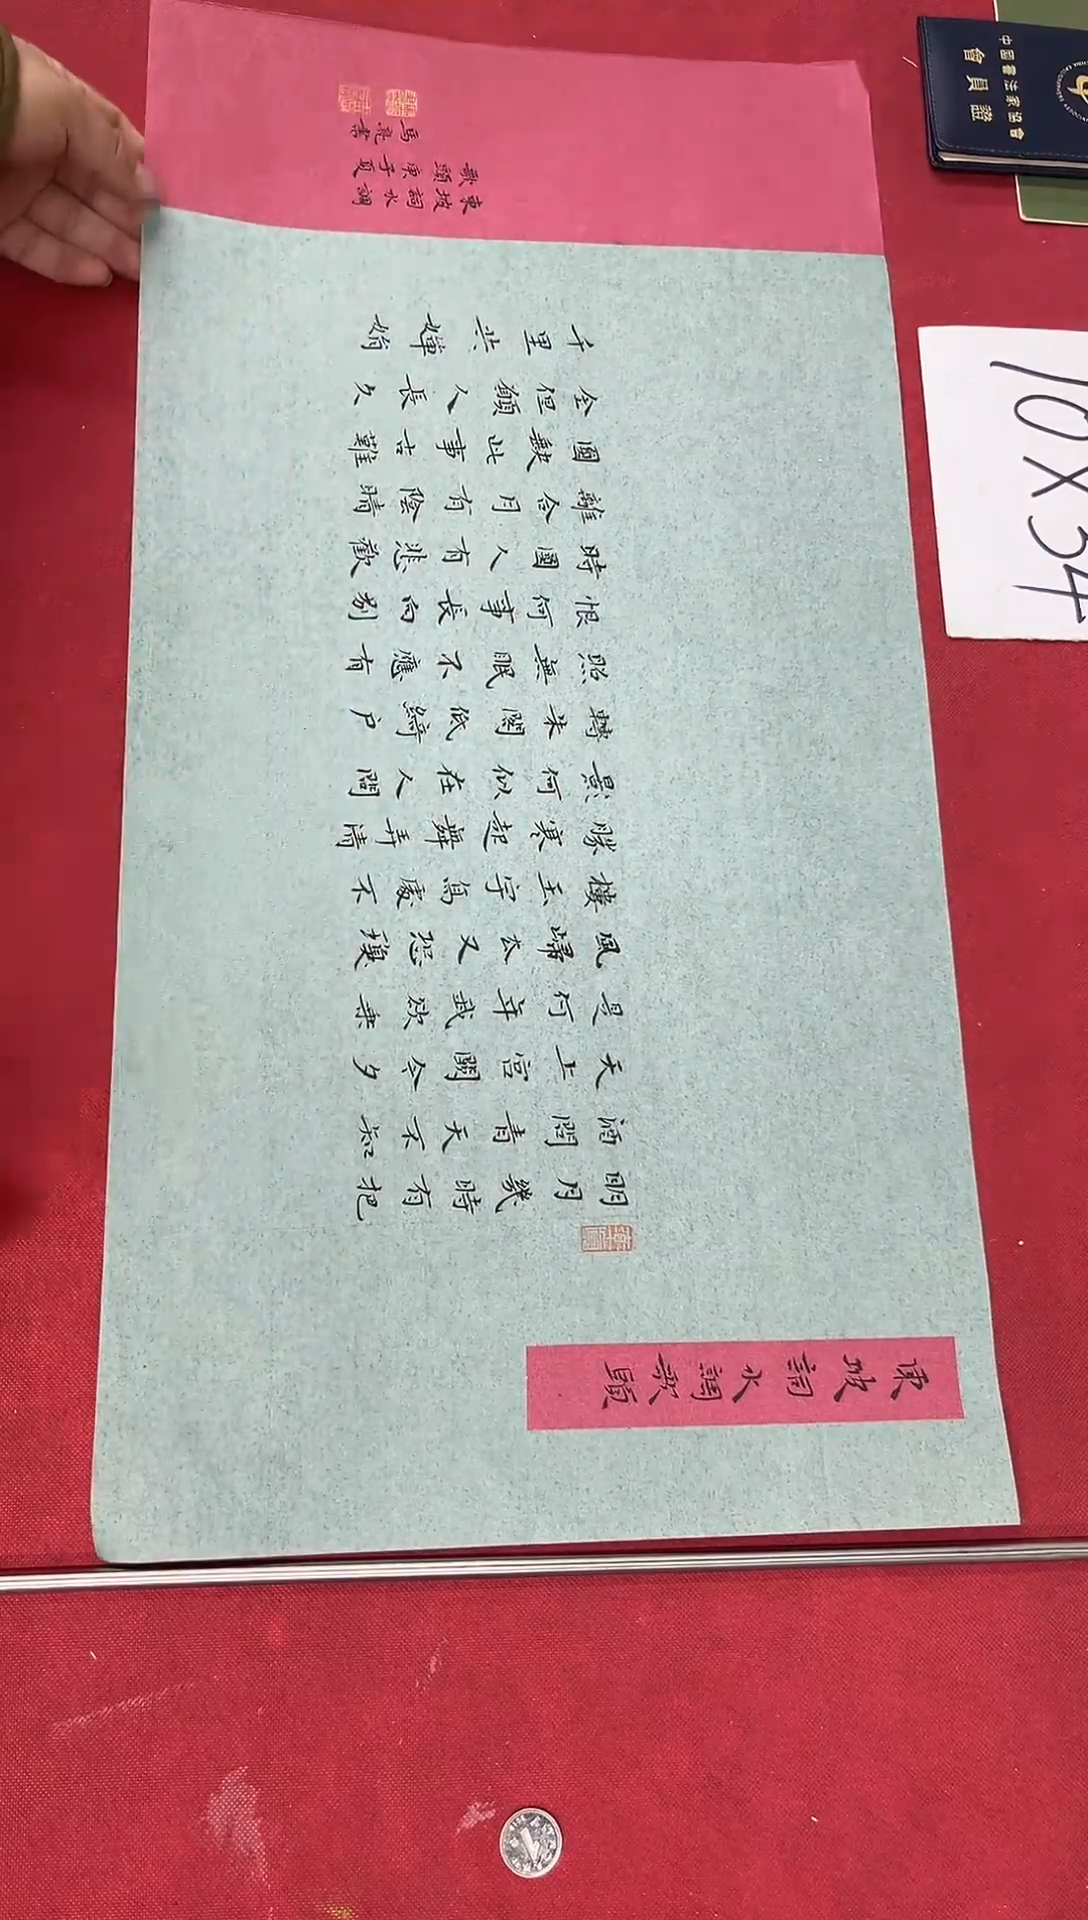 東坡詞水調歌頭
明月幾時有把
酒問青天不知
天上宮闕今夕
是何年我欲乘
風歸去又恐瓊
樓玉宇高處不
勝寒起舞弄清
影何似在人間
轉朱閣低綺户
照無眠不應有
恨何事長向別
時圓人有悲歡
離合月有陰晴
圓缺此事古難
全但願人長久
千里共嬋娟
東坡詞水調
歌頭庚子夏
馬亮書
10X34
中國書法家協會
會員證